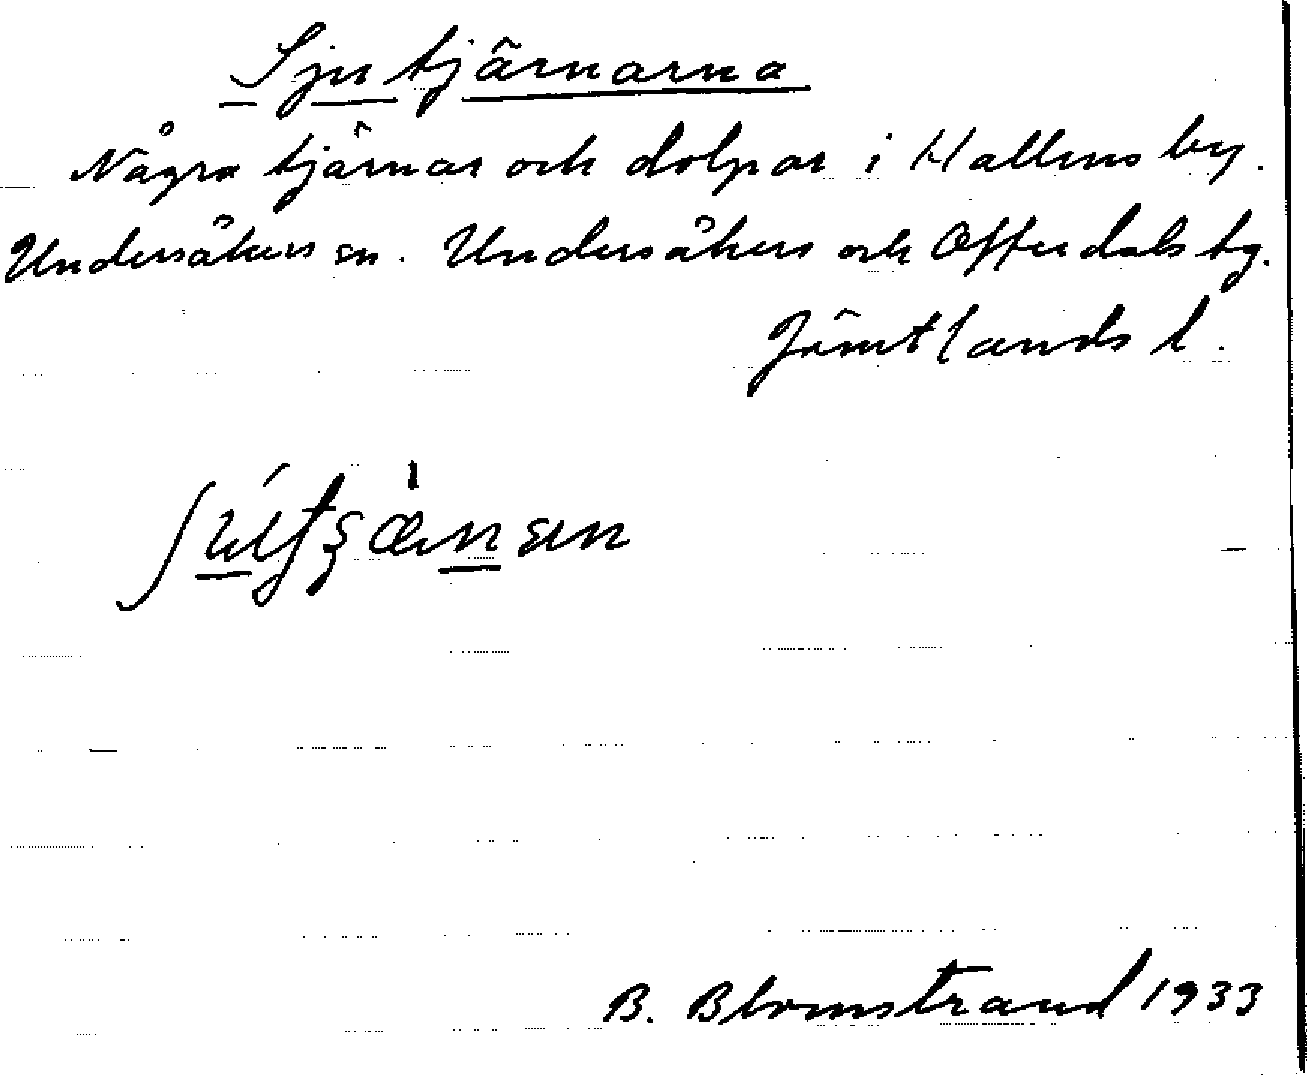 Sjutjärnarna
Några tjärnar och dolpar i Hallens by.
Undersåkers sn. Undersåkers och Offerdals tg.
Jämtlands l.
B. Blomstrand 1933